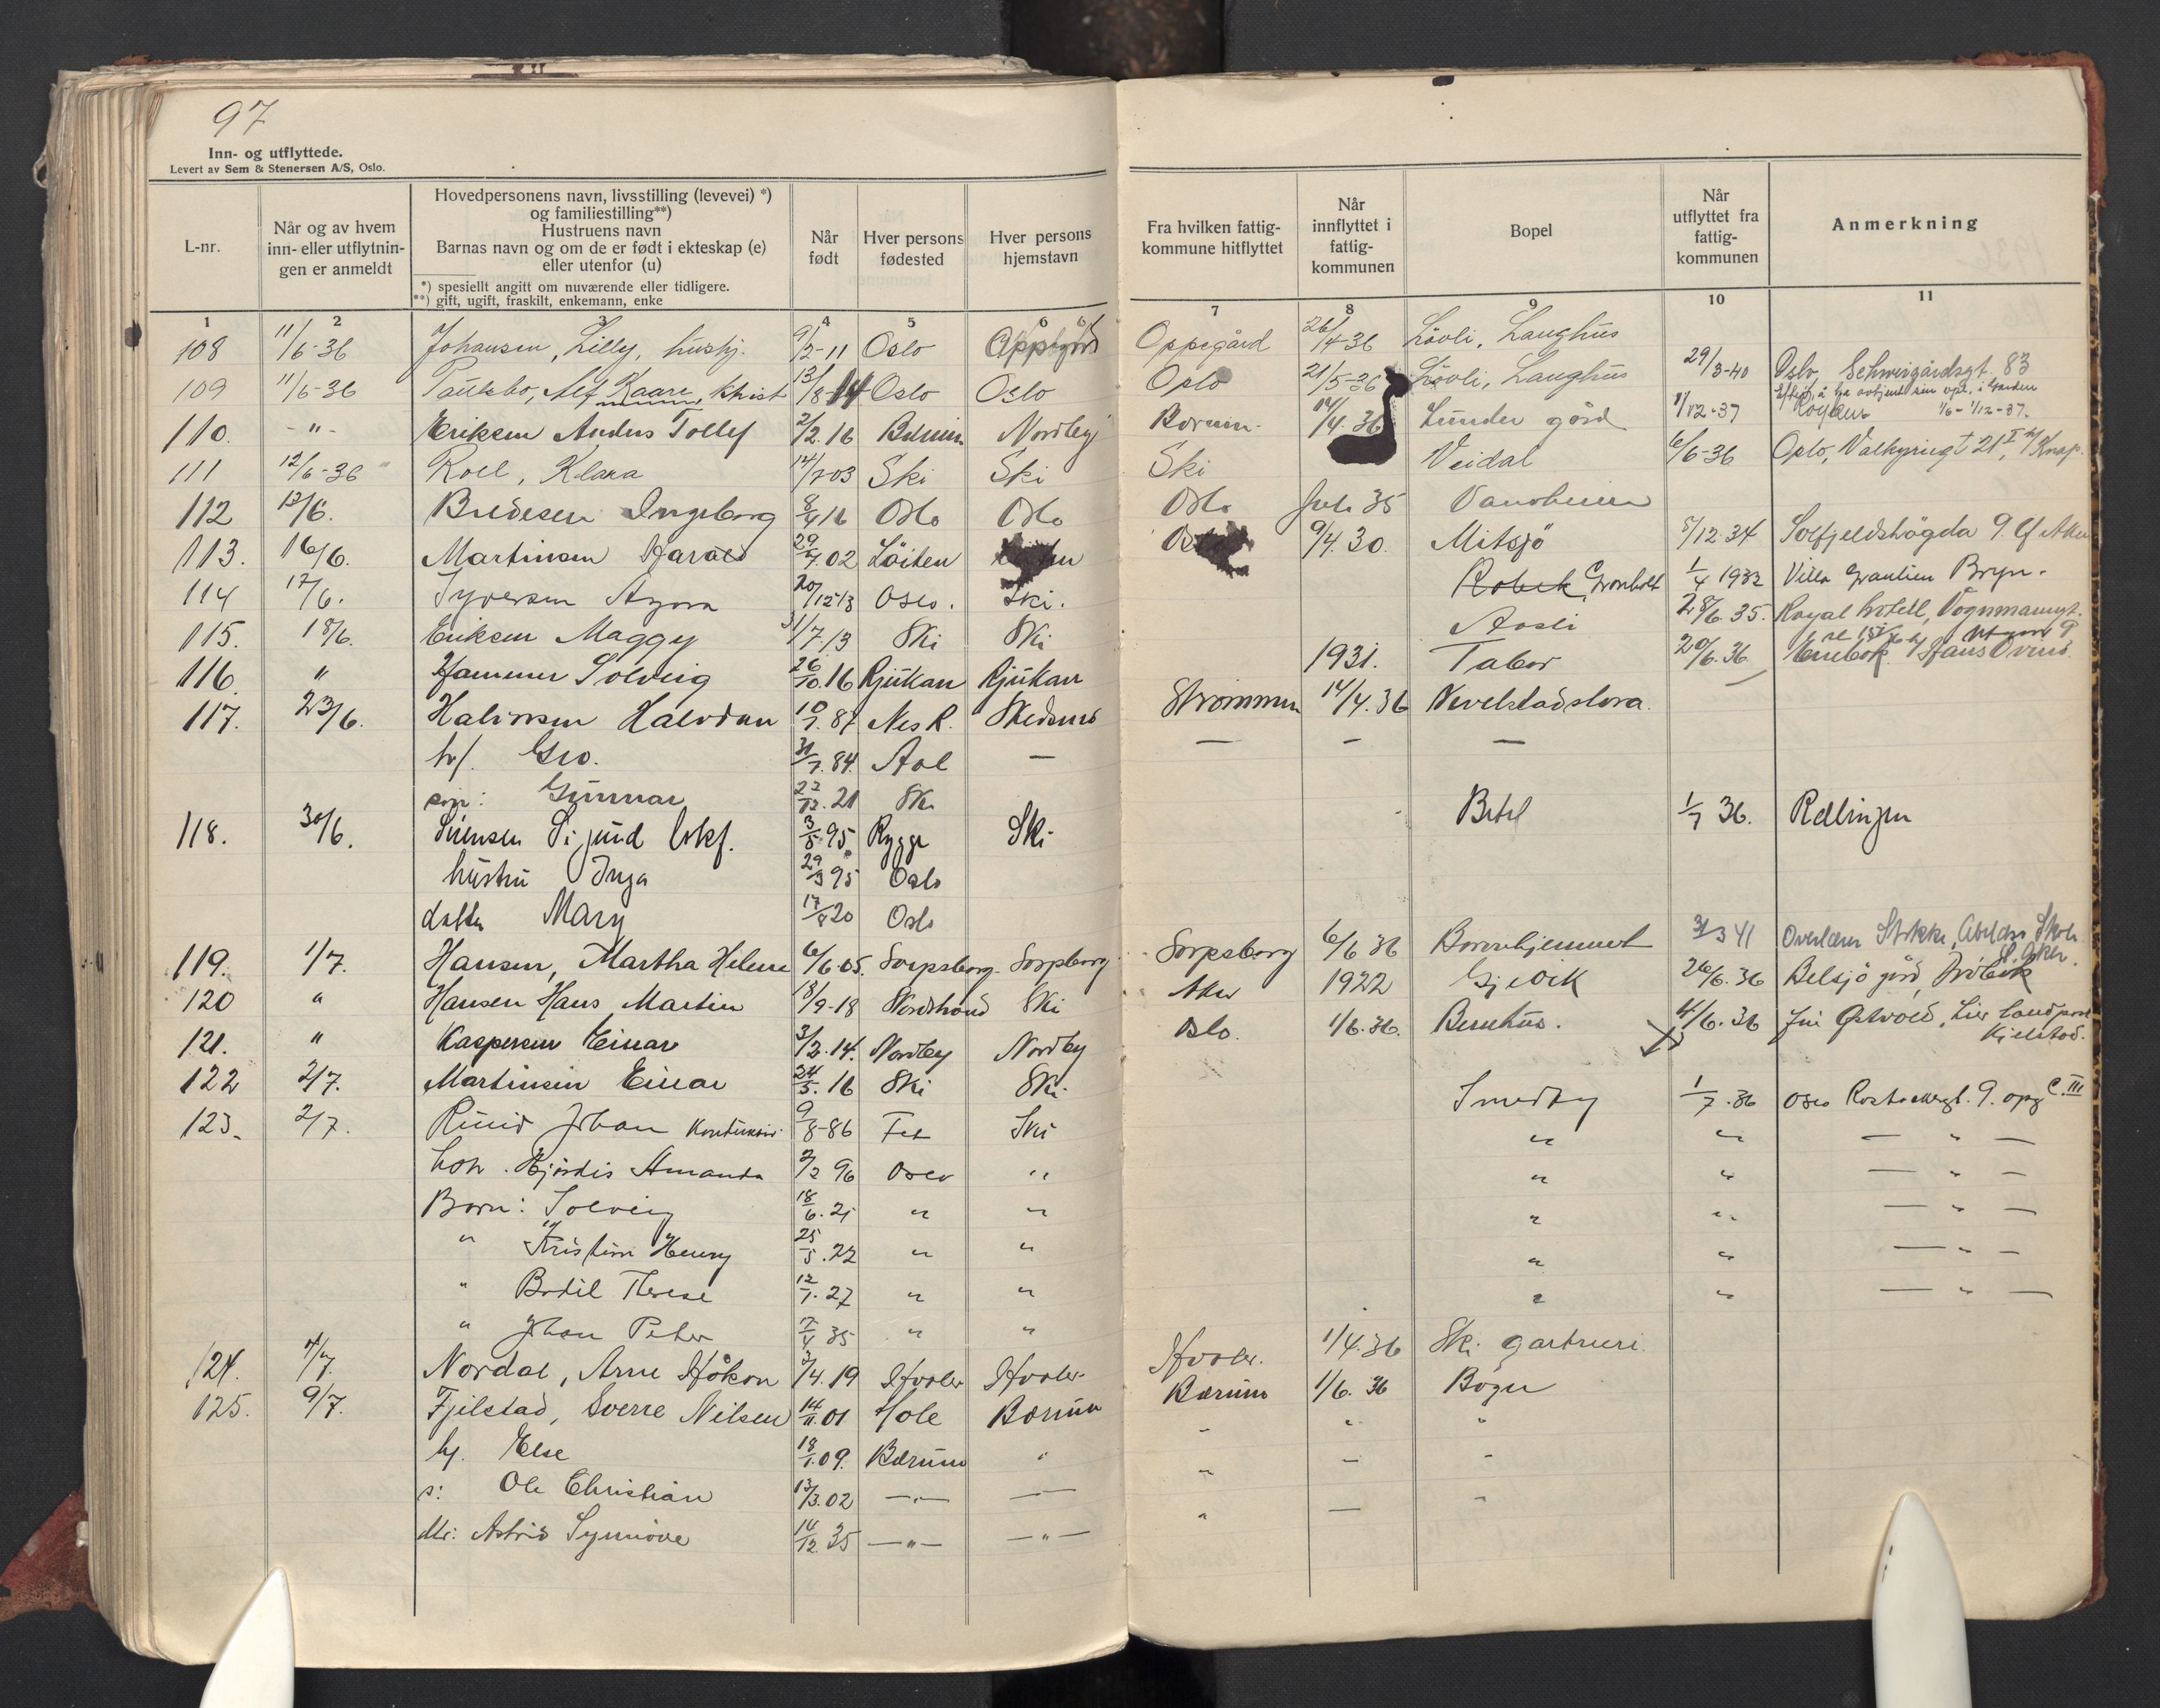 97
Inn- og utflyttede.
Levert av Sem & Stenersen A/S, Oslo.
L-nr.
Når og av hvem
inn- eller utflytnin-
gen er anmeldt
Hovedpersonens navn, livsstilling (levevei) *)
og familiestilling**)
Hustruens navn
Barnas navn og om de er født i ekteskap (e)
eller utenfor (u)
*) spesiellt angitt om nuværende eller tidligere.
**) gift, ugift, fraskilt, enkemann, enke
Når
født
Hver persons
fødested
Hver persons
hjemstavn
Fra hvilken fattig-
kommune hitflyttet
Når
innflyttet i
fattig-
kommunen
Bopel
Når
utflyttet fra
fattig-
kommunen
Anmerkning
1 2 3 4 5 6 7 8 9 10 11
108 11/6-36 Johansen, Lilly, hushj. 9/2-11 Oslo Oppegård Oppegård 26/4-36 Lövli, Langhus
109 11/6-36 Alf Kaare, 13/8-14 Oslo Oslo Oslo 21/5-36 Lövli, Langhus 29/3-40 Oslo, Schweigårdsgt. 83
110. -"- Eriksen Anders Tollef 2/2.16 Bærum Nordby Bærum 14/4.36 Lunder gård 1/12-37 1/6 - 1/12-37.
111 12/6-36 Roll, Klara 14/7-03 Ski Ski Ski Veidal 6/6-36 Oslo,
112 13/6. Bredesen Ingeborg 8/4 16 Oslo Oslo Oslo Juli 35
113. 16/6. Martinsen Harald 29/4.02 Löiten 9/4.30. Mitsjö 5/12 34 Solfjeldshögda 9.
114 17/6. Syversen Agora 20/12 13 Oslo. Ski. Robek Gronholt 1/4 1932 Villa Bryn.
115. 18/6. Eriksen Maggy 31/7.13 Ski Ski Aasli 28/6.35. Royal hotell, Vognmannsgt. 9
116. " Hammer Solveig 26/10.16 Rjukan Rjukan 1931. Tabor 20/6.36
117. 23/6. Halvorsen Halvdan 10/7.87 Nes R. Skedsmo Strømmen 14/4.36
h/. Gro. 31/7.84. Aal — — — —
søn: Gunnar 22/12.21 Ski
118. 30/6. Sigurd 3/5.95 Rygge Ski Betel 1/7 36. Rælingen
hustru Inga 29/3 95 Oslo
datter Mary 17/8 20 Oslo
119. 1/7. Hansen, Martha Helene 6/6.05. Sarpsborg. Sarpsborg. Sarpsborg 6/6 36 Barnehjemmet 31/3 41 Overlærer
120 " Hansen Hans Martin 18/9-18 Nordstrand Ski Aker 1922 Gjevik 26/6.36 Belsjö gård, Dröbak
121. " Kaspersen Einar 3/2.14. Nordby Nordby Oslo. 1/6.36. 4/6.36 Lier
122 2/7. Martinsen Einar 24/5.16 Ski Ski.
123. 2/7. Ruud Johan 9/8-86 Fet Ski Smedby 1/7.36 Oslo 9. opg C.III
Hjørdis Amanda 2/2 96 Oslo " " " — " —
Barn: Solveig 18/6.21 " " " " — " —
" Kristian Henry 25/5.22 " " " " — " —
" Bodil Therese 12/1.27 " " " " — " —
" Johan Peter 7/4 35 " " " " — " —
124. 4/7. Nordal, Arne Håkon 3/4.19 Hvaler Hvaler. Hvaler. 1/4.36 Ski gartneri
125. 9/7. Fjelstad, Sverre Nilsen 14/11.01 Hole Bærum Bærum 1/6.36 Böger
h/. Else 18/1.09. Bærum " " " "
s: Ole Christian 13/3.02 —"— — " — "
dtr: Astrid Synnöve 14/12.35 —"— —"— " — "